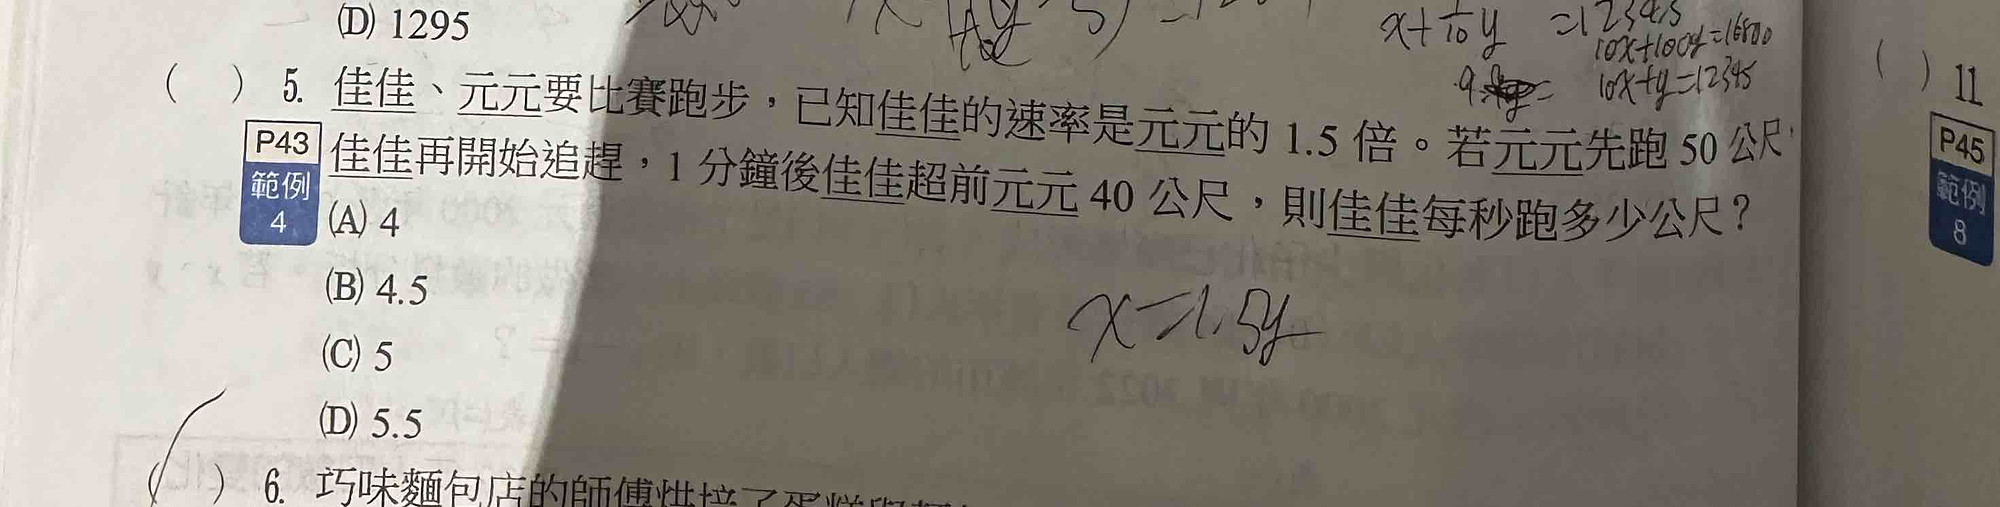 (D) 1295
x+1/10y =12345
10x+100y=16800
10x+y=12345
( ) 5. 佳佳、元元要比賽跑步，已知佳佳的速率是元元的 1.5 倍。若元元先跑 50 公尺，
P43 範例 4
佳佳再開始追趕，1 分鐘後佳佳超前元元 40 公尺，則佳佳每秒跑多少公尺？
(A) 4
(B) 4.5
(C) 5
(D) 5.5
x=1.5y
( ) 6. 巧味麵包店的師傅烘焙了蛋糕與
( ) 11
P45
範例
8